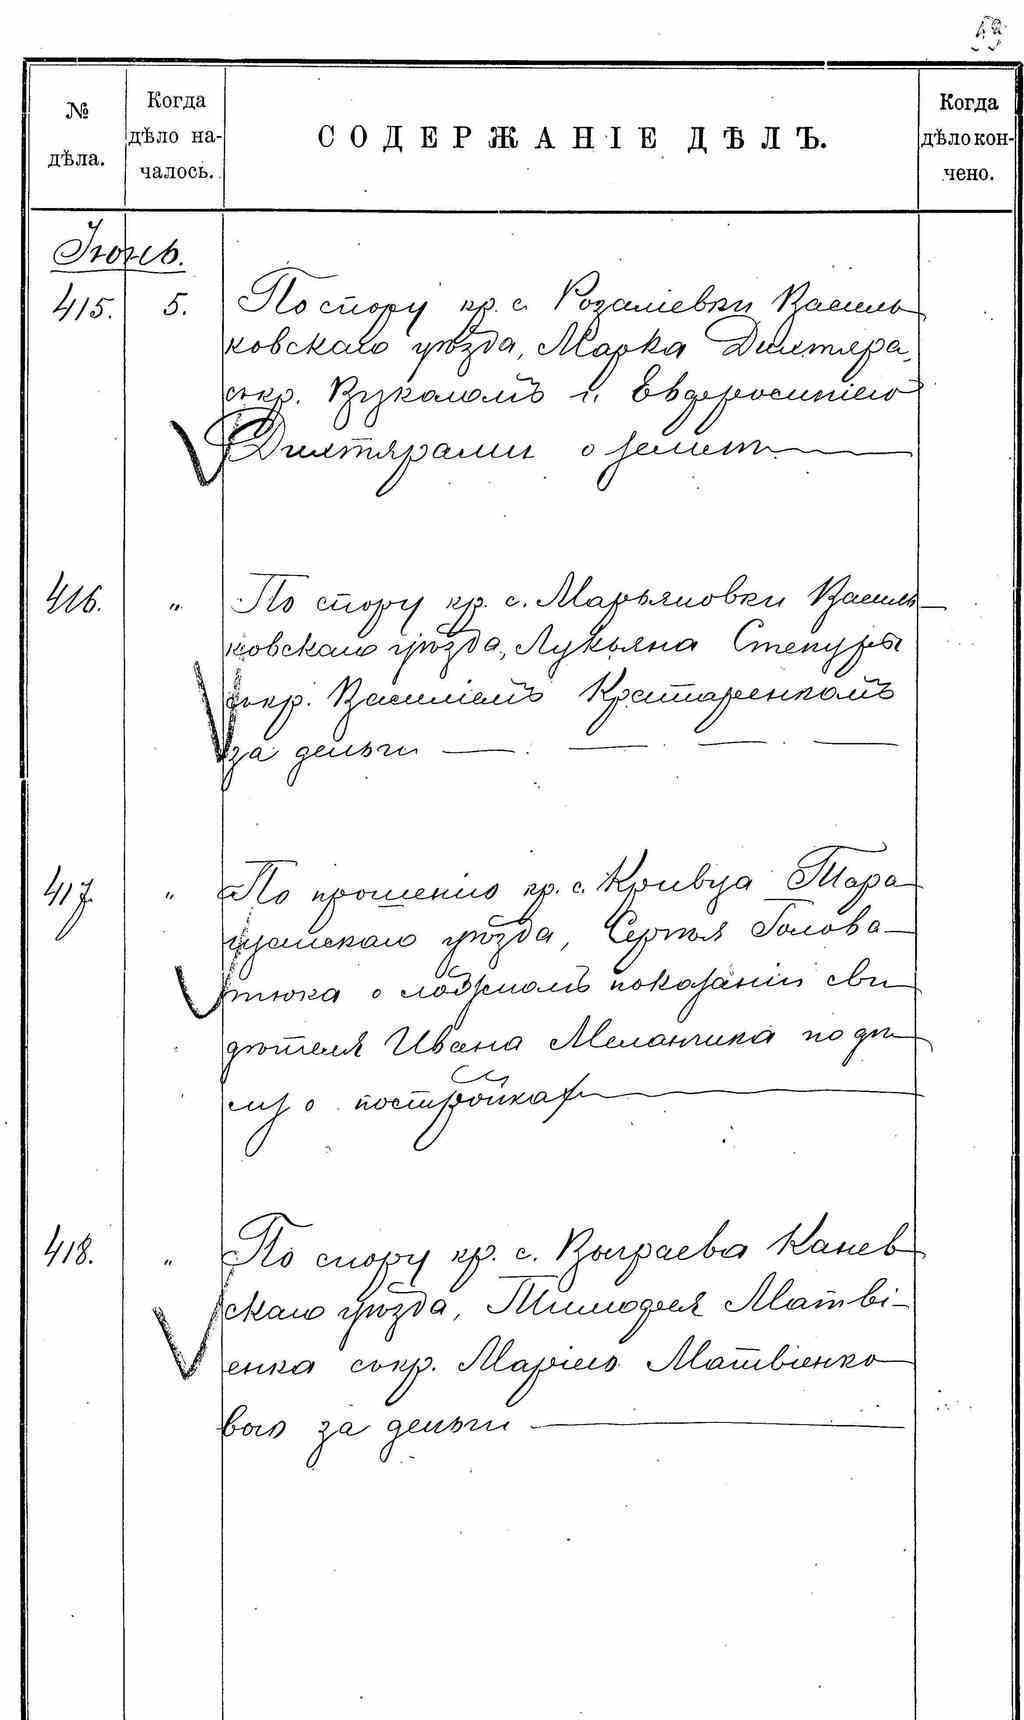 № дѣла.
Когда дѣло на-чалось.
СОДЕРЖАНІЕ ДѢЛЪ.
Когда дѣло кон-чено.
Іюнь.
415. 5. По спору кр. с. Розаліевки Василь
ковскаго уѣзда, Марка Дихтяра,
съ кр. Вуколомъ и Евфросиніею
Дихтярами о землѣ
416. „ По спору кр. с. Марьяновки Василь
ковскаго уѣзда, Лукьяна Степуры
съ кр. Василіемъ
за деньги
417. „ По прошенію кр. с. Кривца Тара
щанскаго уѣзда, Сергѣя Голова-
тюка о ложномъ показаніи сви
дѣтеля Ивана Меланчика по дѣ
лу о постройках
418. „ По спору кр. с. Выграева Канев
скаго уѣзда, Тимофея Матві-
енка съ кр. Маріею Матвіенко
вою за деньги